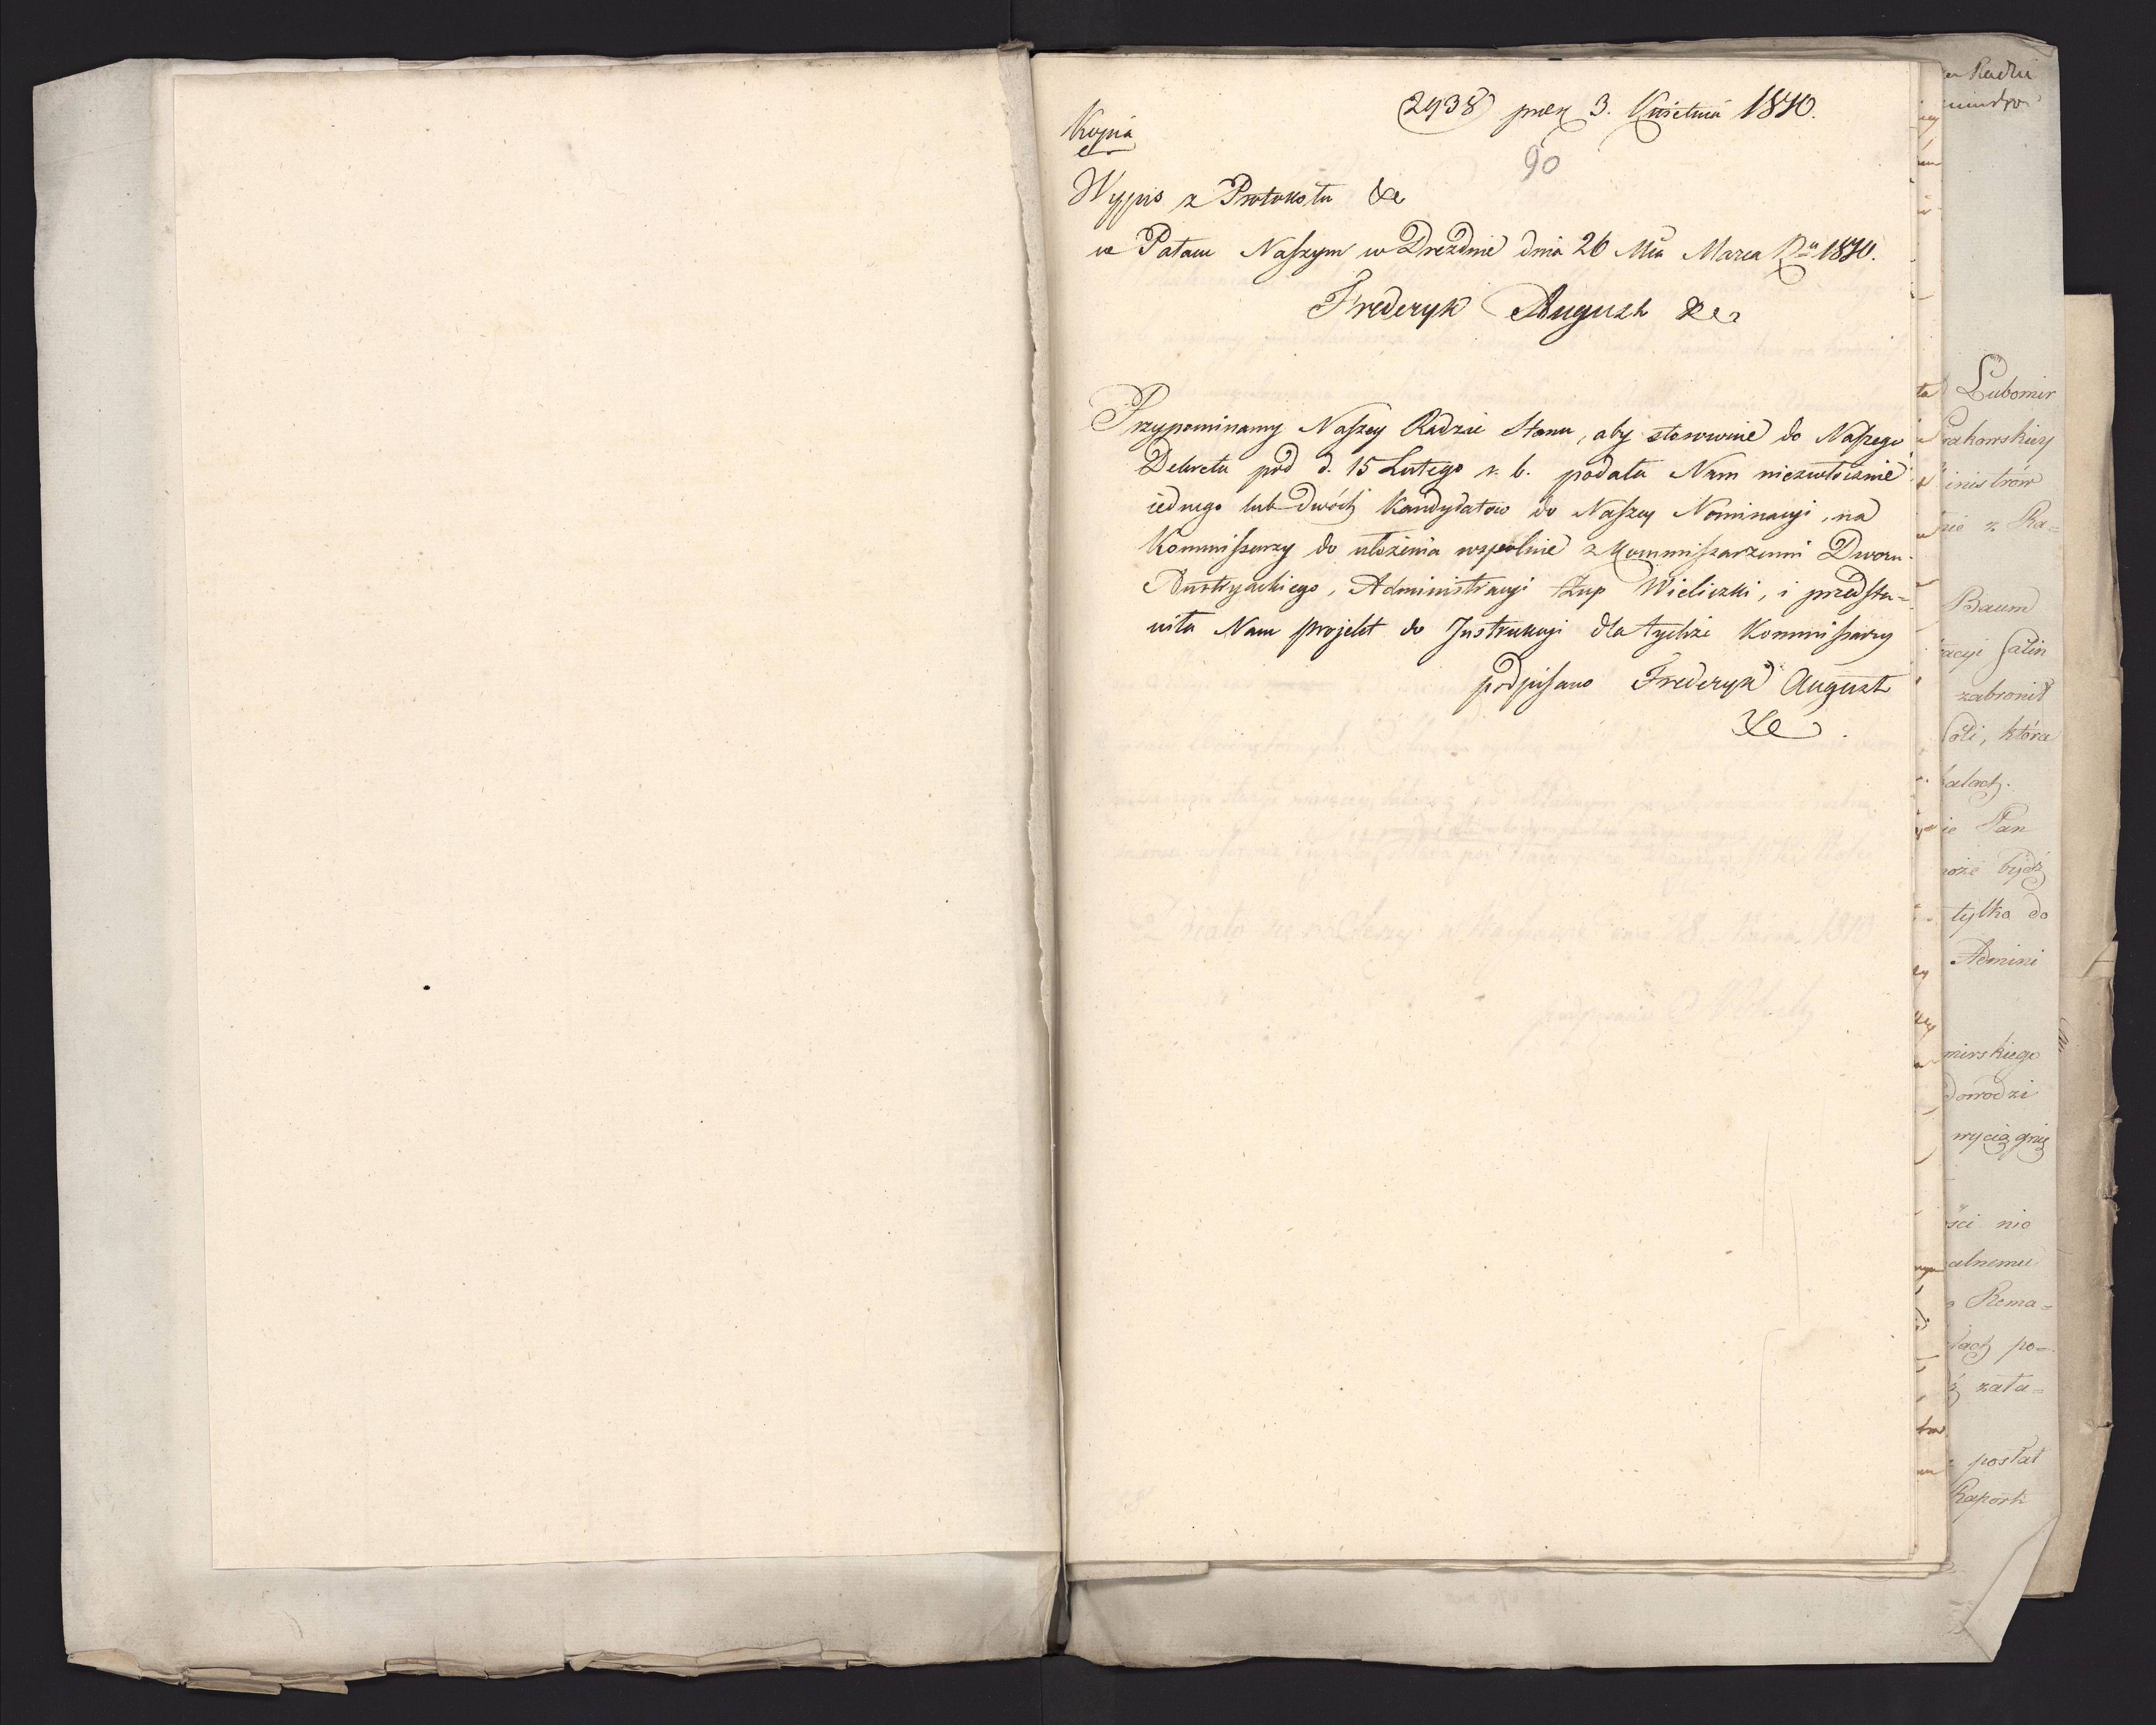 2938 prez 3. Kwietnia 1810.
Kopia
90
Wypis z Protokołu &c
w Pałacu Naszym w Dreźdnie dnia 26 Mca Marca Ru 1810.
Frederyk August &c
Przypominamy Naszey Radzie Stanu, aby stosownie do Naszego
Dekretu pod d. 15 Lutego r. b. podała Nam niezwłocznie
iednego lub dwóch Kandydatow do Naszey Nominacyi, na
Kommissarzy do ułożenia wspolnie z Kommissarzami Dworu
Austryackiego, Administracyi Żup Wieliczki, i przedsta=
wiła Nam projekt do Instrukcyi dla tychże Kommissarzy
podpisano Frederyk August
&c
Lubomir
rakowskiey
inistrów
Baum
acyi Salin
zabronił
soli, która
Pan
bydź
tylko do
Admini
mirskiego
dowodzi
wyciągnię
ści nie
alnemu
Rema=
po=
zała=
posłał
Raport